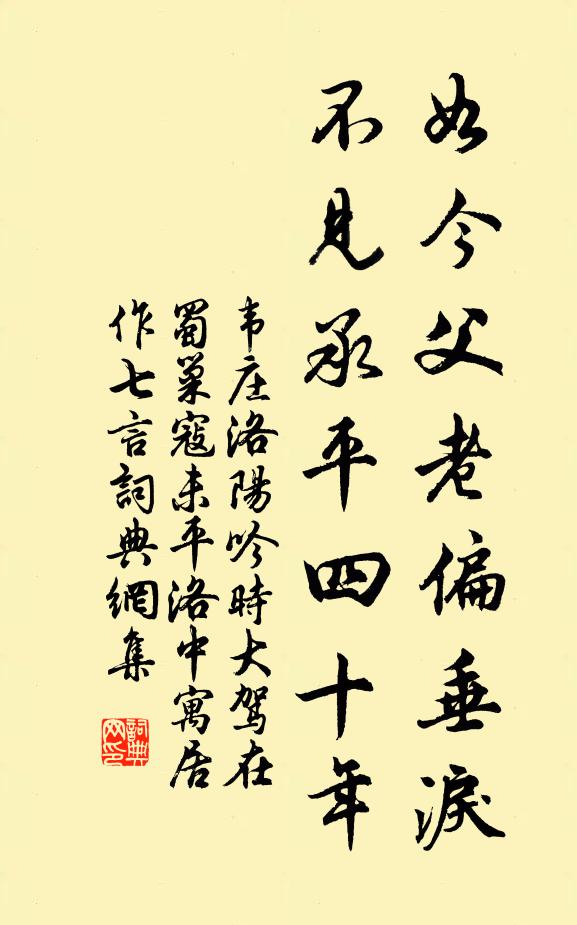 如今父老偏垂淚
不見承平四十年
韦庄洛陽吟時大駕在
蜀巢寇未平洛中寓居
作七言詞典網集
詞典
网印